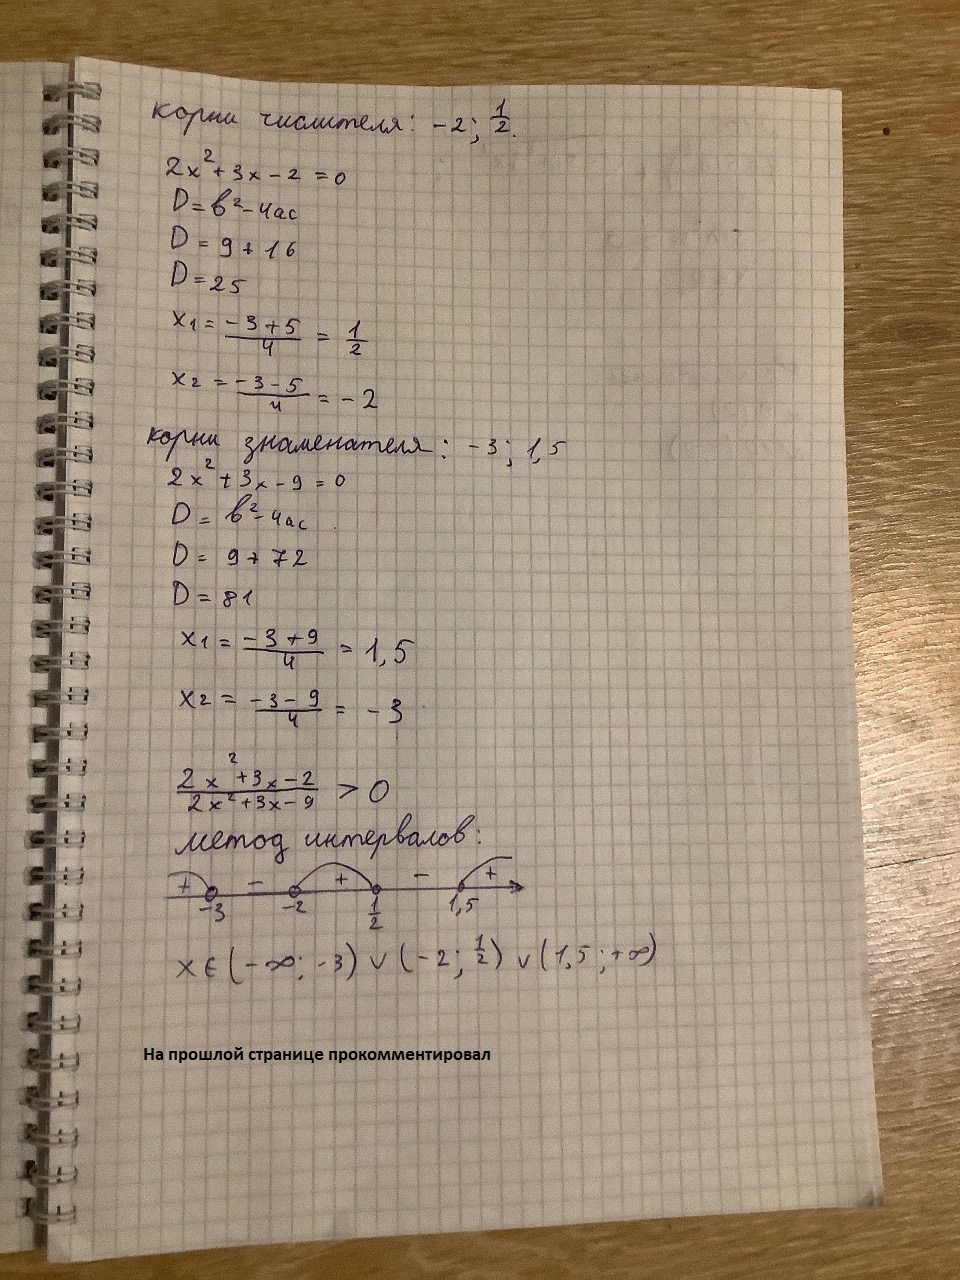 корни числителя: -2; 1/2.
2x²+3x-2=0
D=b²-4ac
D=9+16
D=25
x1=(-3+5)/4=1/2
x2=(-3-5)/4=-2
корни знаменателя: -3; 1,5
2x²+3x-9=0
D=b²-4ac
D=9+72
D=81
x1=(-3+9)/4=1,5
x2=(-3-9)/4=-3
(2x²+3x-2)/(2x²+3x-9)>0
метод интервалов:
+ - + - +
-3 -2 1/2 1,5
x∈(-∞;-3)∨(-2;1/2)∨(1,5;+∞)
На прошлой странице прокомментировал